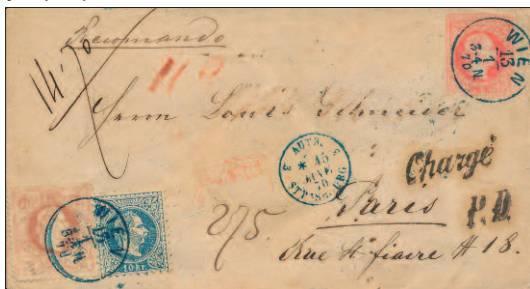 Recomando
WIEN
13
1
3-4.N
70
Herrn Louis Schneider
3 AUTR. 3
* 15
JANV.
70
STRASBOURG
Chargé
275.
Paris
P.D.
Rue St fiacre # 18.
WIEN
13
1
3-4.N
70
10 kr.